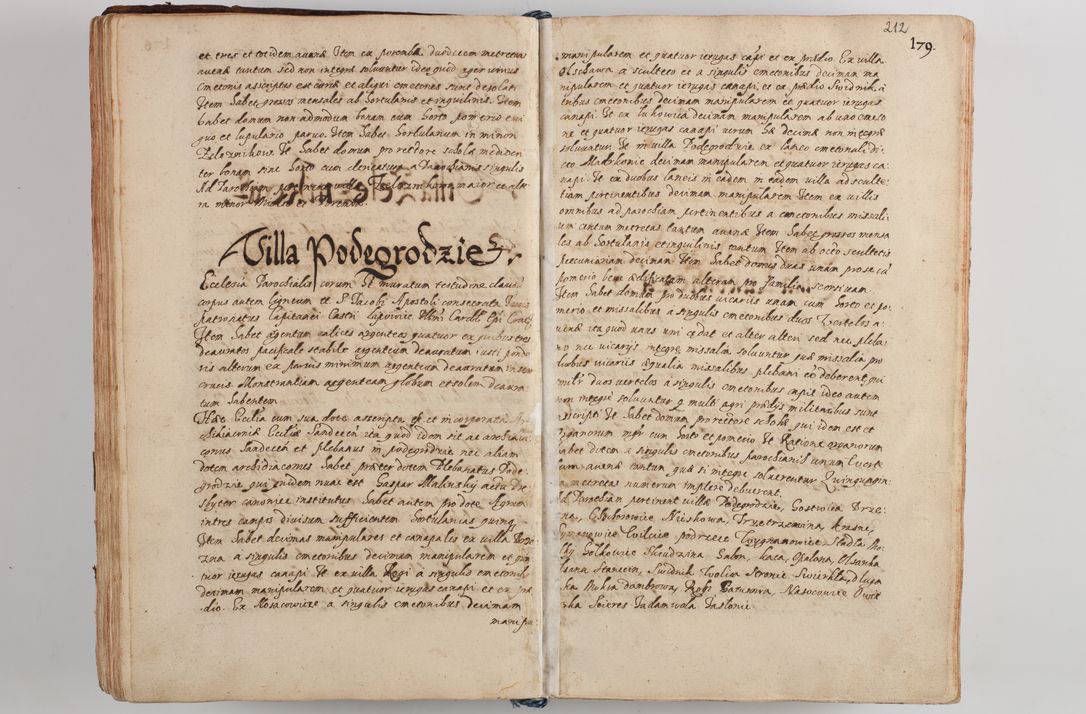 et tres et totidem auenæ Item ex poremba duodecem metretas
auenæ tantum sed non integræ soluuntur ideo quod ager unius
cmetonis ascriptus est curiæ et aliqui cmetones sunt desolati
Item habet grossos mensales ab hortulanis et inquilinis. Item
habet domum non admodum bonam cum horto pomerio exi
guo et lupulario paruo. Item habet hortulanum in minori
Zeleznikow. It habet domum pro rectore scholæ mediocri
ter bonam sine horto cum clericatura a Parochianis singulis
Ad Parochiam pertinent villæ Zeleznikowa maior et alte
ra minor
Villa Podegrodzie.
Ecclesia Parochialis corum et muratum testudine clausum
corpus autem ligneum tt S. Jacobi Apostoli consecrata
patronatus Capitanei Castri Illmi Cardlis Epi Crac.
Item habet argentum calices argenteos quatuor ex quibus tres
deauratos pacificale stabile argenteum deauratum iusti ponde
ris alterum ex paruis minimum argenteum deauratum in
crucis. Monstrantiam argenteam globum et solem deaura
tum habentem.
Hæc Ecclia cum sua dote asscripta est et incorporata Ar
chidiaconiæ Eccliæ Sandecen ita quod idem sit ac archidia
conus Sandecen et plebanus in podegrodzie nec aliam
dotem archidiaconus habet præter dotem Plebanatus Pode
grodzie qui quidem nunc est Gaspar Malinsky actu Pre
sbyter canonice institutus habet autem pro dote Agrum
in tres campos diuisum sufficientem hortulanias quinq
Item habet decimas manipulares et canapales ex villa Brze
zna a singulis cmetonibus decimam manipularem et qua
tuor ierugas canapi It ex villa Rogi a singulis cmetonib
decimam manipularem et quatuor ierugas canapi et ex præ
dio. Ex Mosacowicze a singulis cmetonibus decimam
manipu
212
179.
manipularem et quatuor ierugas capi et ex prædio Ex villa
Olschawa a sculteto et a singulis cmetonibus decimam ma
nipularem et quatuor ierugas canapi, et ex prædio Swidnik, a
tribus cmetonibus decimam manipularem et quatuor ierugas
canapi It ex lukowica decimam manipularem ab uno cmeto
ne et quatuor ierugas canapi uerum hæ decimæ non integræ
soluuntur It in villa Podegrodzie ex laneo cmetonali di
cto Madrkonie decimam manipularem et quatuor ierugas ca
napi. It ex duobus laneis in eadem in eadem villa ad sculte
tiam pertinentibus decimam manipularem Item ex villis
omnibus ad parochiam pertinentibus a cmetonibus missali
um metretas tantum auenæ Item habet grossos mensa
les ab hortulanis et inquilinis tantum Item ab octo scultetis
pecuniariam decimam Item habet domos duas unam pro se cu
pomerio bene ædificatam alteram pro familia
Item habet domum pro duobus vicariis unam cum horto et po
merio et missalibus a singulis cmetonibus duos Zwertelos a
uenæ ita quod unus uni cedat et alter alteri sed nec pleba
no nec vicariis integre missalia soluuntur quæ missalia pro
duobus vicariis æqualia missalibus plebani esse deberent, qui
duos uertelos a singulis cmetonibus capit ideo autem
non integre soluuntur q multi agri prædiis militaribus sunt
ascripti It habet domum pro rectore scholæ qui idem est et
organorum mgr cum horto et pomerio It Ratione organorum
habet dotem a singulis cmetonibus parochianis unum Cwerte
lum auenæ tantum quæ si integre soluerentur Quinquagin
ta metretas numerum implere debuerent.
Ad Parochiam pertinent villæ Podegrodzie, Gostwica Brze
zna, Chochorowice Nieskowa, Trzetrzewina, Krasne,
Gostwice podrzece Croygnanowice, Stadla, Mo
Golkowice Skrudzina Gabon, kaca, Opalona, Olsanka
Stanecin, Swidnik Wolica Stronie Swierkla, dluga
ka Mokra dambrowa, Rogi Barwowa, Nasocowice Owie
czka Soieres Jadamwola Jastonie.